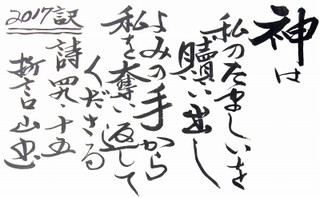 神は
私のたましいを
贖い出し
よみの手から
私を奪い返して
くださる
詩四九・十五
2017訳